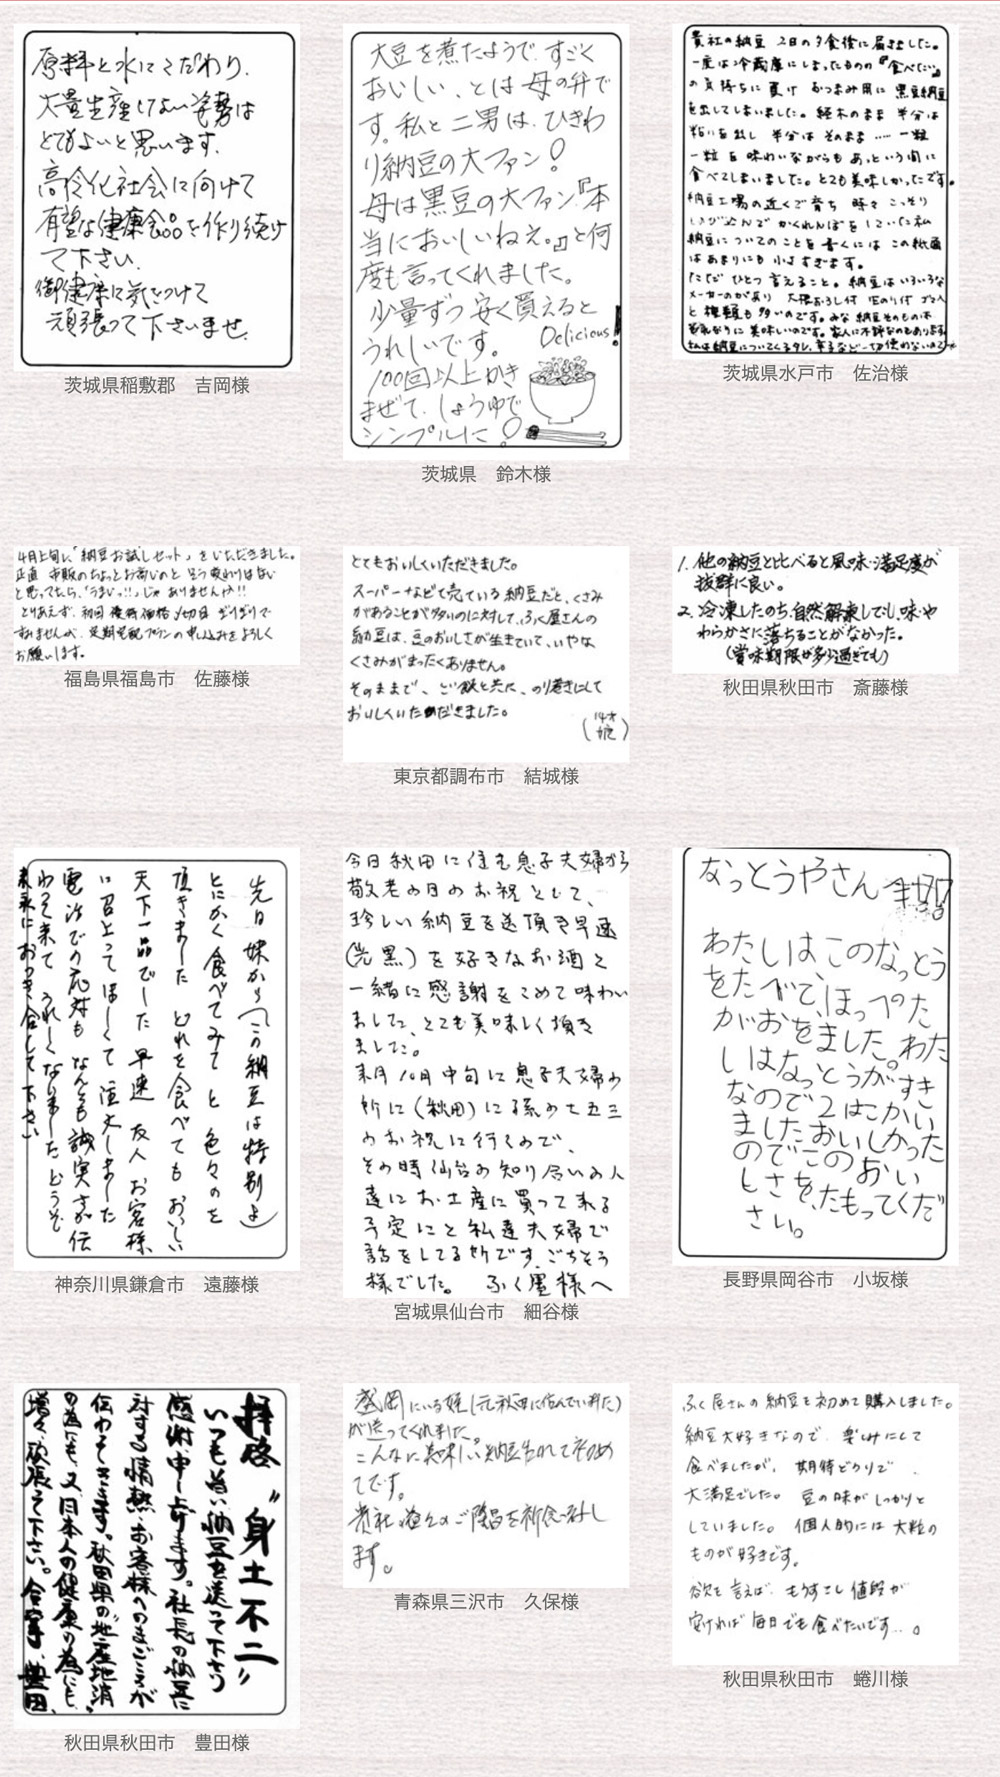 原料と水にこだわり、
大量生産しない姿勢は
とてもよいと思います。
高令化社会に向けて
有望な健康食品を作り続け
て下さい。
御健康に気をつけて
頑張って下さいませ。
茨城県稲敷郡　吉岡様
大豆を煮たようで、すごく
おいしい、とは母の弁で
す。私と二男は、ひきわ
り納豆の大ファン!
母は黒豆の大ファン『本
当においしいねえ。』と何
度も言ってくれました。
少量ずつ安く買えると
うれしいです。
Delicious!
100回以上かき
まぜて、しょうゆで
シンプルに!
茨城県　鈴木様
貴社の納豆 2日の夕食後に届きました。
一度は冷蔵庫にしまったものの『食べたい』
の気持ちに負け おつまみ用に 黒豆納豆
を出してしまいました。経木のまま 半分は
粘りを出し 半分は そのまま …… 一粒
一粒を味わいながらも あっという間に
食べてしまいました。とても美味しかったです。
納豆工場の近くで育ち 時々 こっそり
しのび込んで かくれんぼをしていた私
納豆についてのことを書くには この紙面
はあまりにも 小さすぎます。
ただ ひとつ 言えること。納豆はいろいろな
メーカーのがあり 大根おろし付 のり付 ゴマ入
と種類も多いのです。みな 納豆そのものは
茨城県水戸市　佐治様
4月上旬に「納豆お試しセット」をいただきました。
正直 市販のちょっとお高いのと そう変わりはない
と思ってたら、「うまいっ!!」じゃ ありませんか!!
とりあえず、初回 優待価格〆切日 ぎりぎりで
すみませんが、定期宅配プランの申し込みをよろしく
お願いします。
福島県福島市　佐藤様
とてもおいしくいただきました。
スーパーなどで売っている納豆だと、くさみ
があることが多いのに対して、ふく屋さんの
納豆は、豆のおいしさが生きていて、いやな
くさみがまったくありません。
そのままで、ご飯と共に、のり巻きにして
おいしくいただきました。
東京都調布市　結城様
1. 他の納豆と比べると風味・満足度が
抜群に良い。
2. 冷凍したのち、自然解凍しても、味や
やわらかさに落ちることがなかった。
(賞味期限が多少過ぎても)
秋田県秋田市　斎藤様
先日 妹から(この納豆は特別よ)
とにかく食べてみて と 色々のを
頂きました どれを食べても おいしい
天下一品でした 早速 友人 お客様
に召上ってほしくて 注文しました
電話での応対も なんとも誠実さが伝
わって来て うれしくなりました どうぞ
末永くおつき合いして下さい
神奈川県鎌倉市　遠藤様
今日秋田に住む息子夫婦から
敬老の日のお祝として、
珍しい納豆を送頂き早速
(光黒)を好きなお酒と
一緒に感謝をこめて味わい
ました、とても美味しく頂き
ました。
来月10月中旬に息子夫婦の
所に(秋田)に孫の七五三
のお祝に行くので、
その時仙台の知り合いの人
達にお土産に買って来る
予定にと私達夫婦で
話をしてる所です。ごちそう
様でした。 ふく屋様へ
宮城県仙台市　細谷様
なっとうやさん
わたしはこのなっとう
をたべて、ほっぺた
がおちました。わた
しはなっとうがすき
なので2はこかい
ました おいしかった
のでこのおい
しさを、たもってくだ
さい。
長野県岡谷市　小坂様
拝啓 "身土不二"
いつも旨い納豆を送って下さり
感謝申し上げます。社長の納豆に
対する情熱・お客様へのまごころが
伝わってきます。秋田県の"地産地消"
の為にも、又、日本人の健康の為にも、
増々、頑張って下さい。 豊田
秋田県秋田市　豊田様
盛岡にいる姪(元秋田に住んでいました)
が送ってくれました。
こんなに美味しい納豆生れて初め
てです。
貴社益々のご隆昌を祈念致し
ます。
青森県三沢市　久保様
ふく屋さんの納豆を初めて購入しました。
納豆大好きなので、楽しみにして
食べましたが、期待どうりで、
大満足でした。 豆の味がしっかりと
していました。 個人的には 大粒の
ものが好きです。
欲を言えば、もうすこし値段が
安ければ 毎日でも食べたいです…。
秋田県秋田市　蜷川様